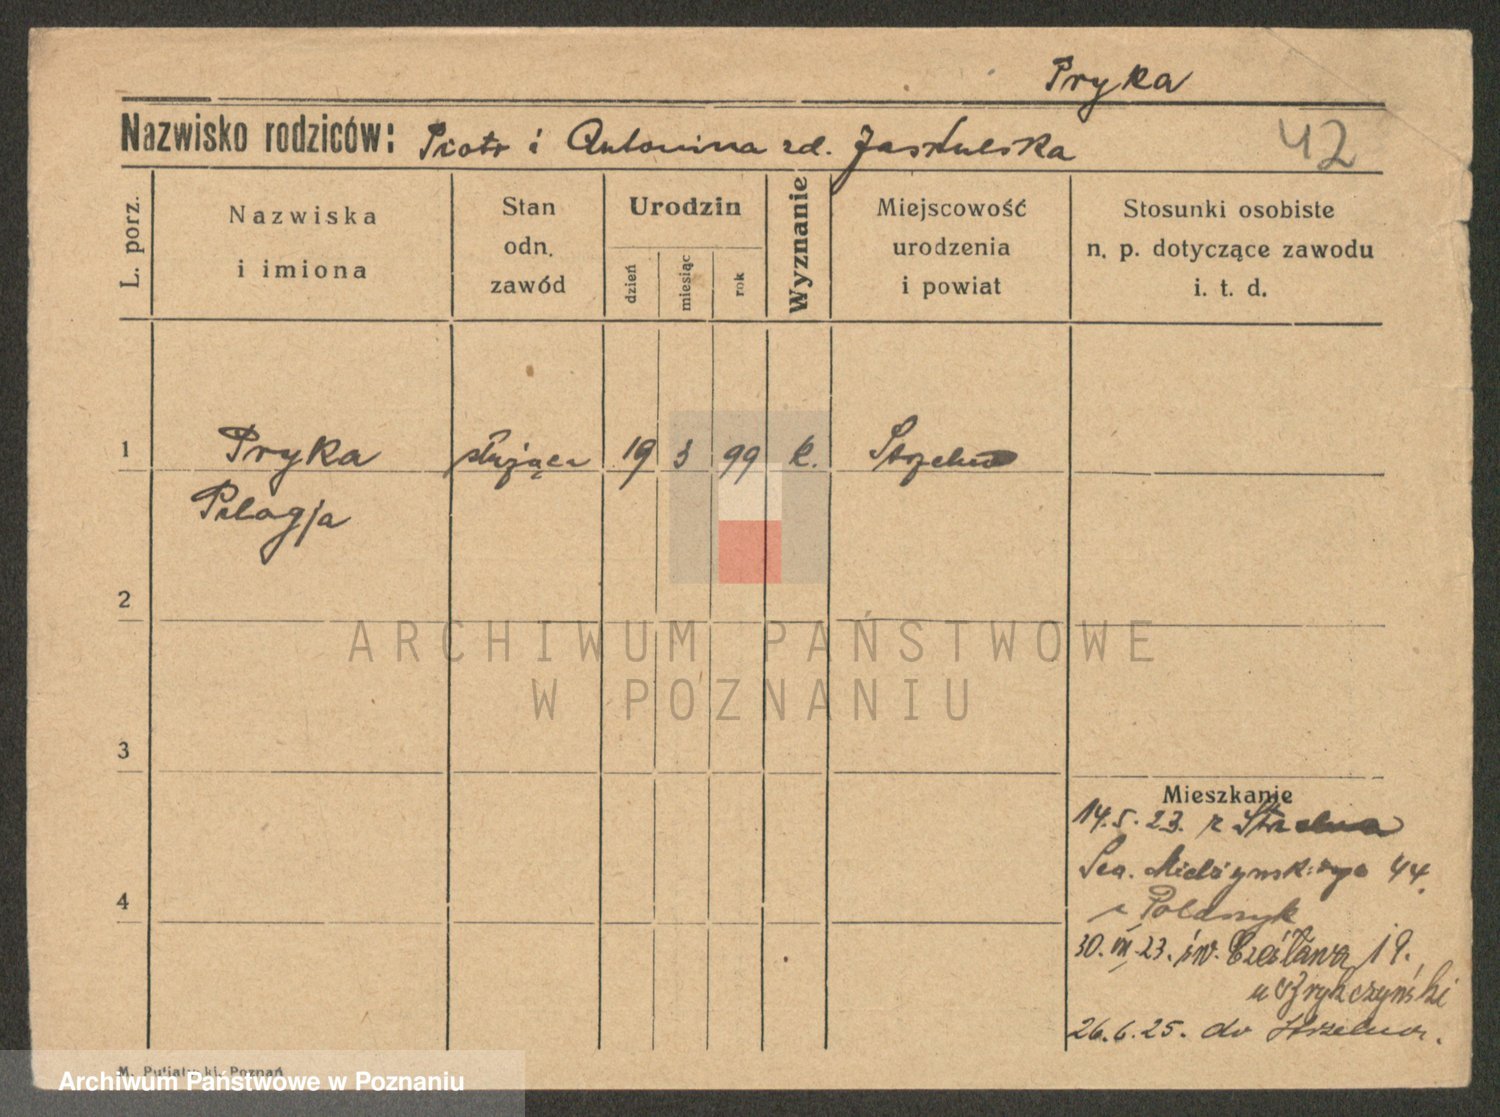 Pryka
Nazwisko rodziców: Piotr i Antonina zd. Jastulska
42
L. porz.
Nazwiska
i imiona
Stan
odn.
zawód
Urodzin
dzień
miesiąc
rok
Wyznanie
Miejscowość
urodzenia
i powiat
Stosunki osobiste
n. p. dotyczące zawodu
i. t. d.
1
Pryka
Pelagja
służąca
19
3
99
k.
Strzelno
2
ARCHIWUM PAŃSTWOWE
W POZNANIU
3
Mieszkanie
14.5.23. z Strzelna
Sew. Mielżyńskiego 44.
4
30. III. 23. św. Czesława 19.
26.6.25. do Strzelna.
M. Putiatycki, Poznań
Archiwum Państwowe w Poznaniu